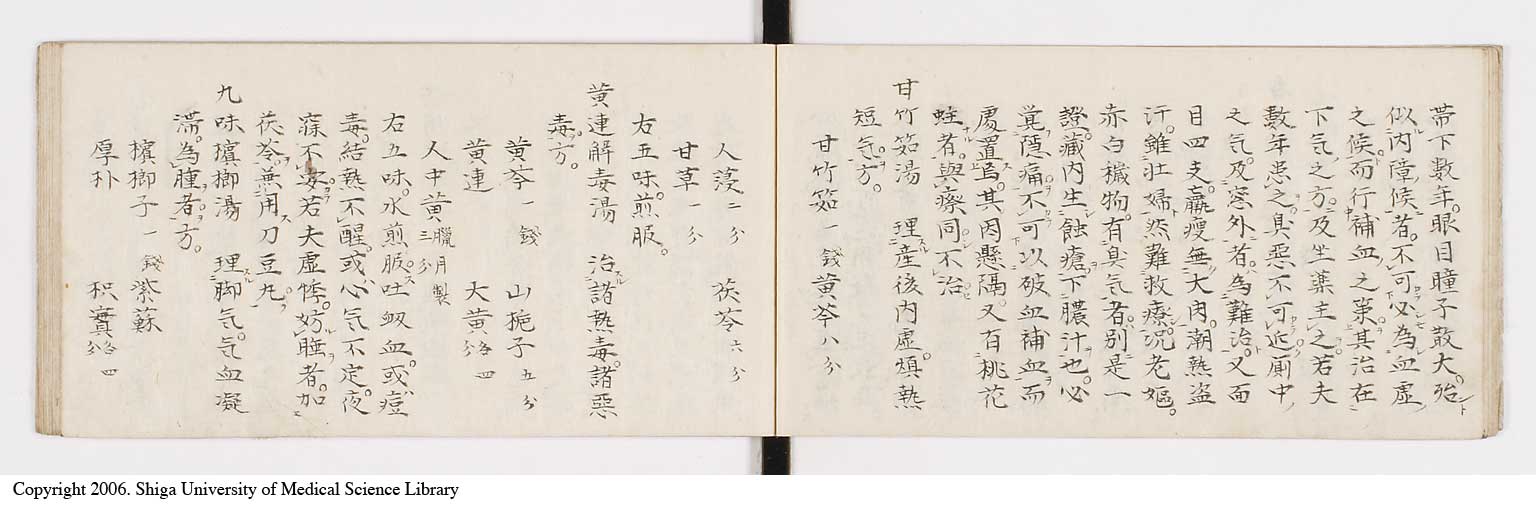 帯下数年。眼目瞳子散大。殆
似内障候者。不可必為血虚
之候而行補血之策。其治在
下気之方。及坐薬主之。若夫
數年患之。臭悪不可近厠中
之気。及窓外者。為難治。又面
目四支。羸瘦無大肉。潮熱盗
汗。雖壮婦。然難救療。况老嫗。
赤白穢物。有臭気者。別是一
證。蔵内生蝕瘡。下膿汁也。必
覚隠痛。不可以破血補血而
處置焉。其因懸隔。又百桃花
蛀者。與瘵同不治
甘竹筎湯 理産後内虚。煩熱
短気。方。
甘竹筎一錢 黄芩八分
人蓡二分 茯苓六分
甘草一分
右五味。煎服。
黄連解毒湯 治諸熱毒。諸惡
毒。方。
黄芩一錢 山梔子五分
黄連 大黄各四分
人中黄臘月製三分
右五味。水煎服。吐衂血。或痘
毒。結熱不醒。或心気不定。夜
寐不安。若夫虚悸。妨睡者。加
茯苓。無用刀豆九。
九味檳榔湯 理脚気。気血凝
滞。為腫者。方。
檳榔子一錢 紫蘇
厚朴 枳實各四分
Copyright 2006. Shiga University of Medical Science Library